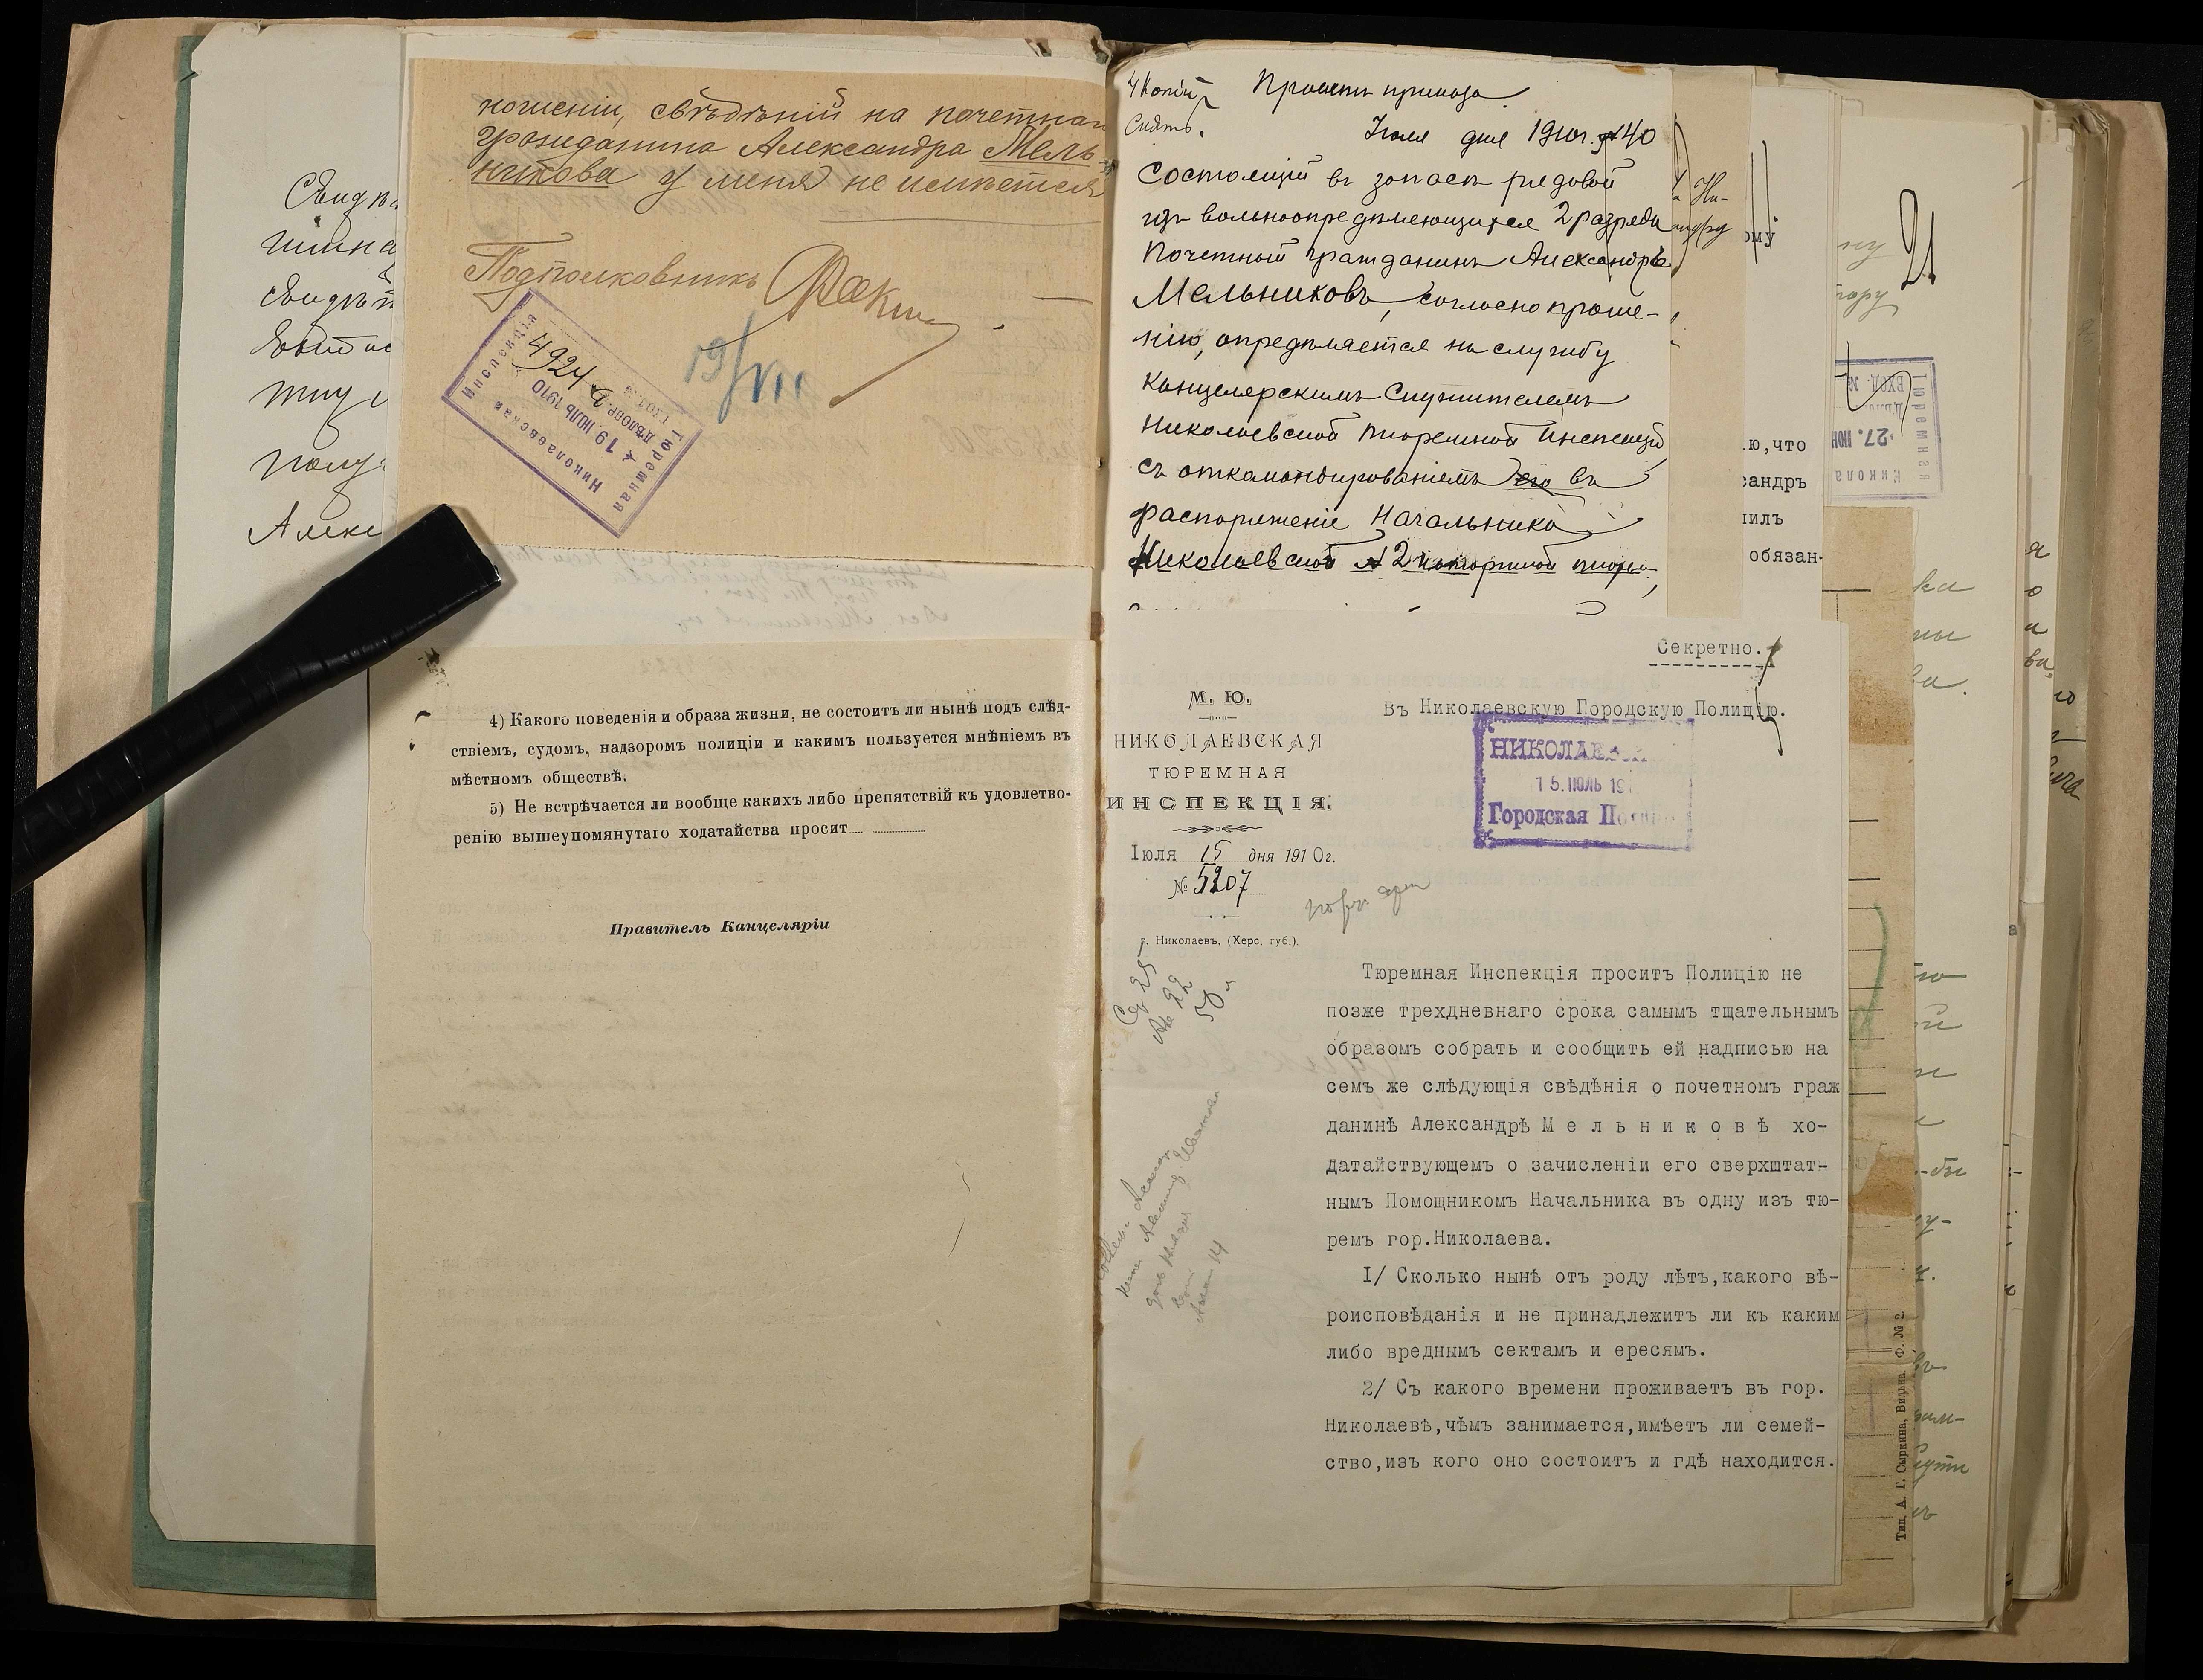 Свидѣ
гимна
свидѣт
Алекс
ношеніи, свѣдѣній на почетнаг
гражданина Александра Мель-
никова у меня не имѣется
Подполковникъ
19/VII
Николаевская
Тюремная
Инспекція
4924
19 ІЮЛЬ 1910
4) Какого поведенія и образа жизни, не состоитъ ли нынѣ подъ слѣд-
ствіемъ, судомъ, надзоромъ полиціи и какимъ пользуется мнѣніемъ въ
мѣстномъ обществѣ.
5) Не встрѣчается ли вообще какихъ либо препятствій къ удовлетво-
ренію вышеупомянутаго ходатайства просит
Правитель Канцеляріи
4 копіи
Снять.
Проектъ приказа
Іюля дня 1910г. № 40
Состоящій въ запасѣ рядовой
изъ вольноопредѣляющихся 2 разряда
Почетный гражданинъ Александръ
Мельниковъ, согласно проше-
нію, опредѣляется на службу
Канцелярскимъ Служителемъ
Николаевской Тюремной Инспекціи
съ откомандированіемъ его въ
распоряженіе Начальника
Николаевской № 2 каторжной тюрь-
Секретно.
М. Ю.
НИКОЛАЕВСКАЯ
ТЮРЕМНАЯ
ИНСПЕКЦІЯ.
Іюля 15 дня 1910г.
№ 5207
г. Николаевъ, (Херс. губ.).
Въ Николаевскую Городскую Полицію.
НИКОЛАЕВ
15. ІЮЛЬ 19
Городская По
Тюремная Инспекція проситъ Полицію не
позже трехдневнаго срока самымъ тщательнымъ
образомъ собрать и сообщить ей надписью на
семъ же слѣдующія свѣдѣнія о почетномъ граж
данинѣ Александрѣ Мельниковѣ хо-
датайствующемъ о зачисленіи его сверхштат-
нымъ Помощникомъ Начальника въ одну изъ тю-
ремъ гор.Николаева.
I/ Сколько нынѣ отъ роду лѣтъ,какого вѣ-
роисповѣданія и не принадлежитъ ли къ каким
либо вреднымъ сектамъ и ересямъ.
2/ Съ какого времени проживаетъ въ гор.
Николаевѣ,чѣмъ занимается,имѣетъ ли семей-
ство,изъ кого оно состоитъ и гдѣ находится.
ому
ю,что
сандръ
илъ
обязан-
21
Тюремная
Никола
27. ІЮН
ВХОД. №
Тип. А. Г. Сыркина, Вильна. Ф. № 2